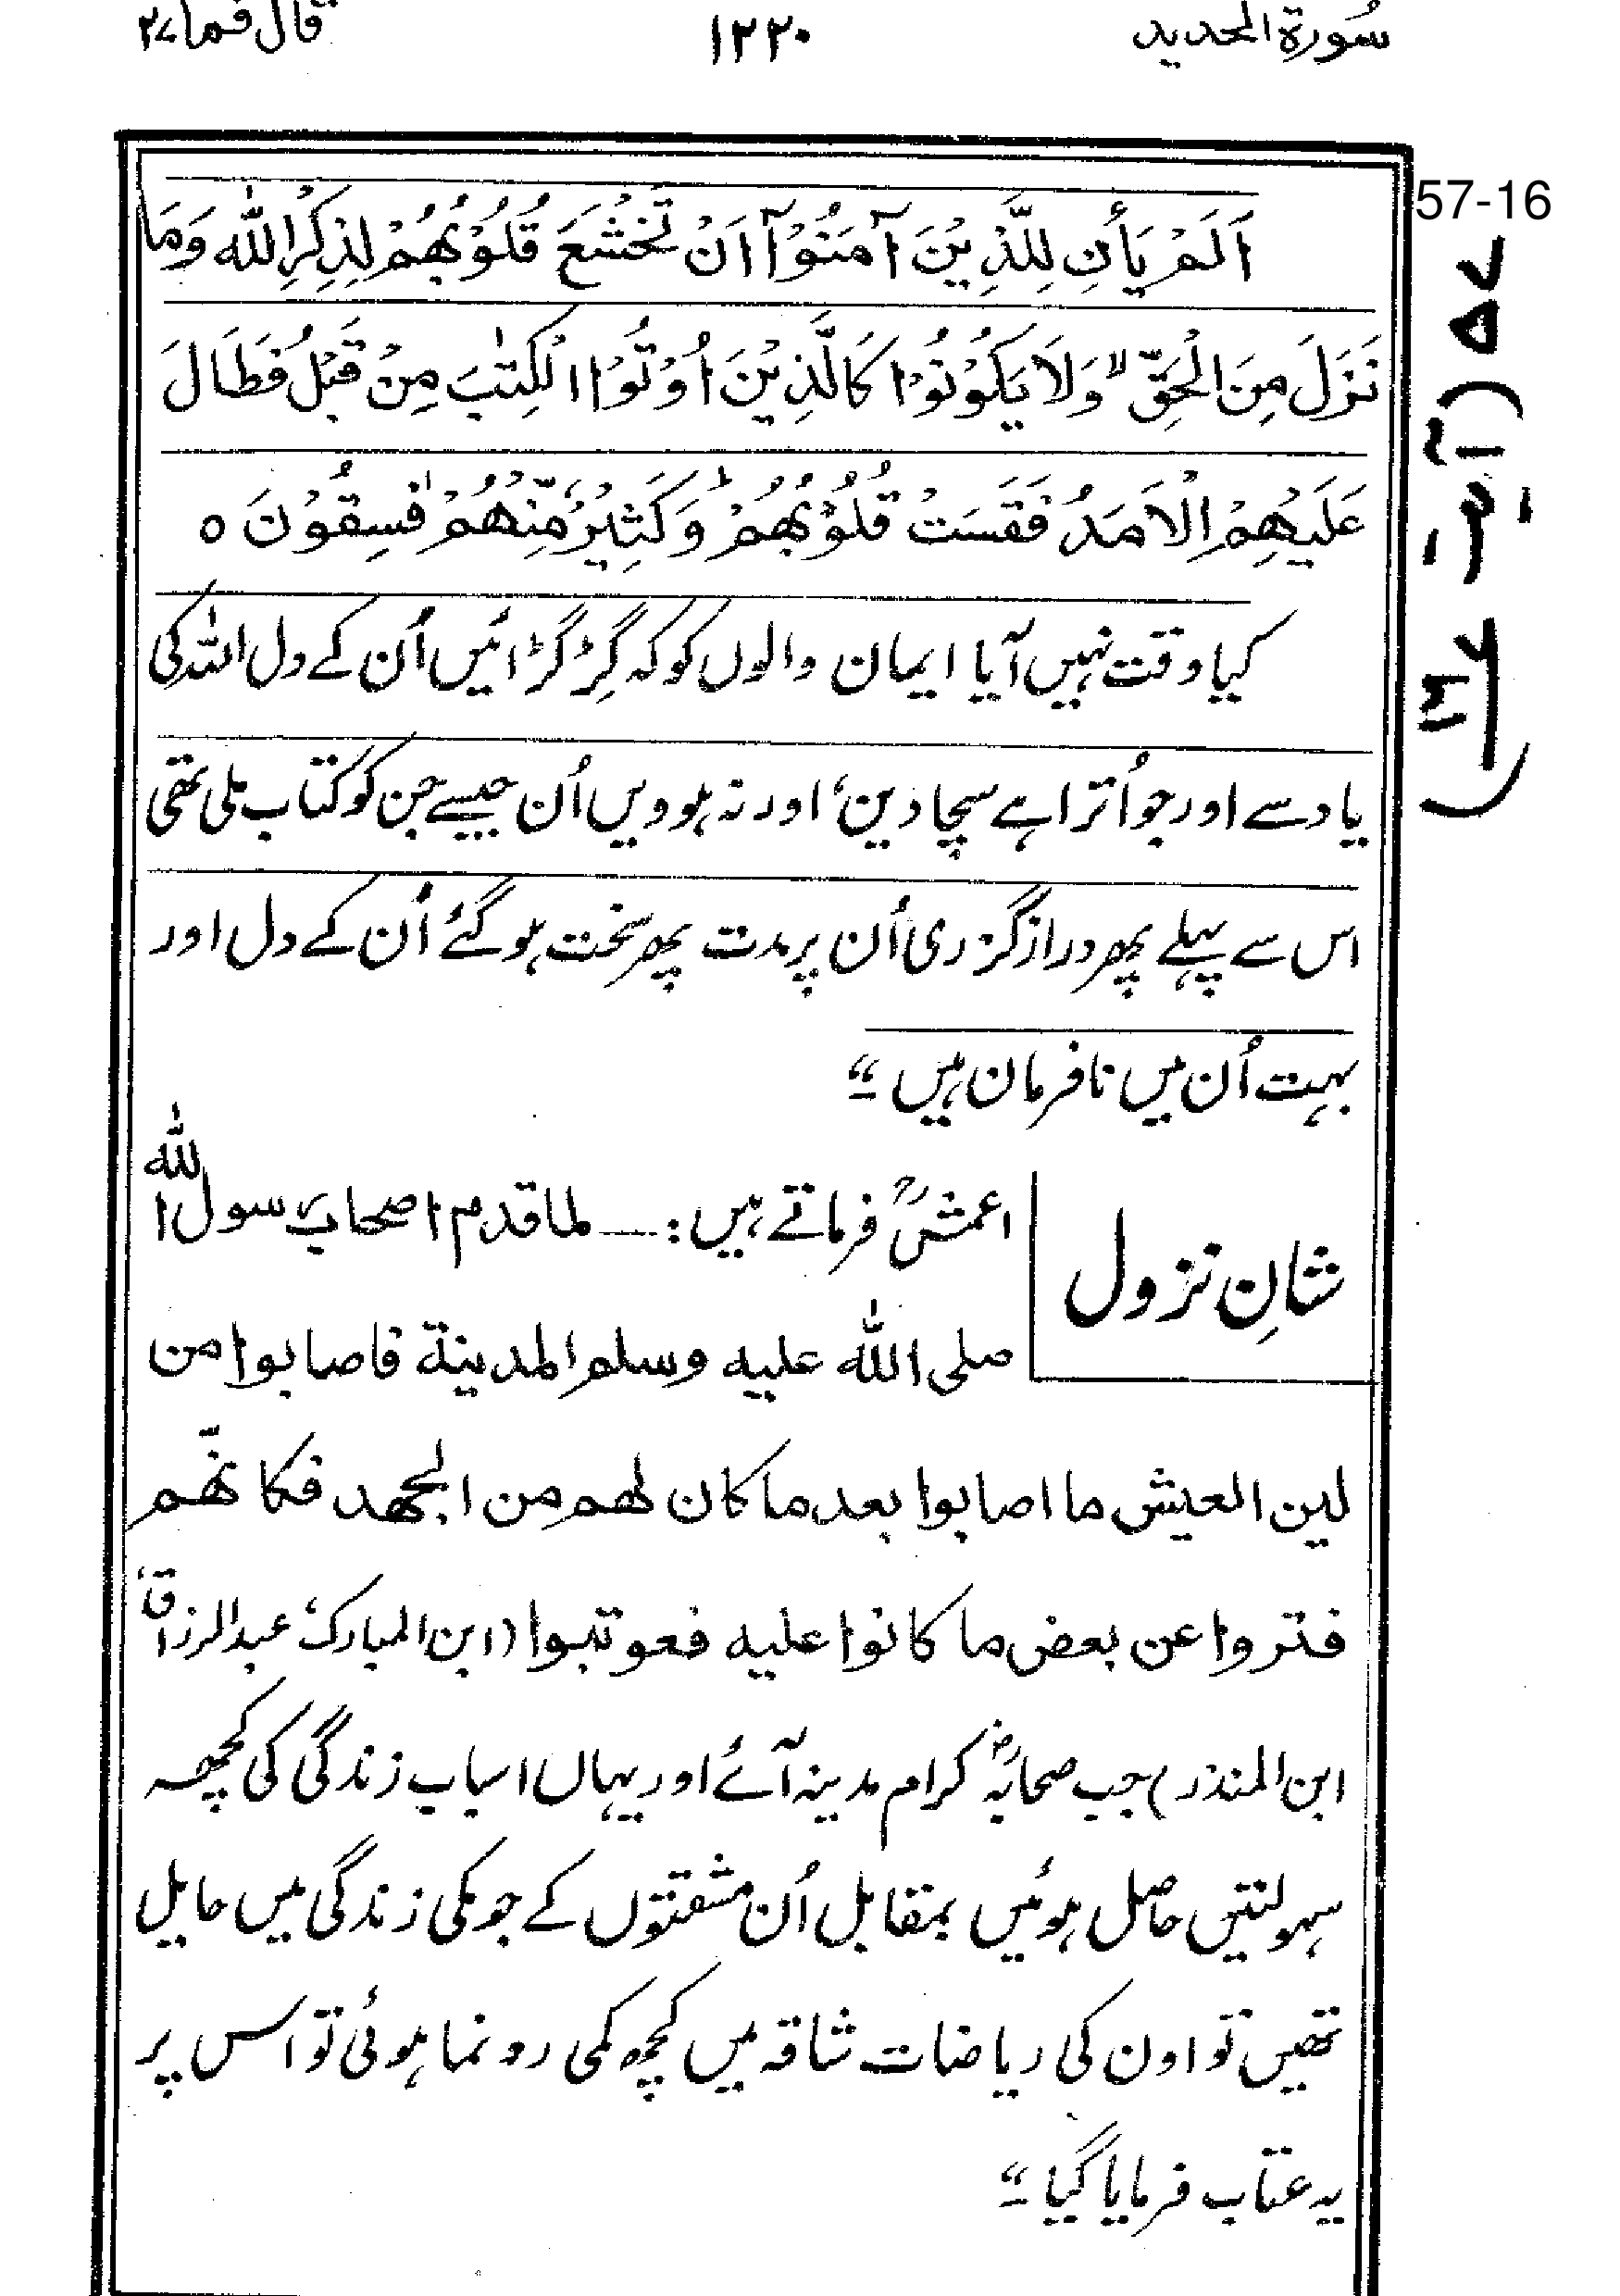 سُورة الحديد ١٢٢٠ قال فما ٢٧
57-16
اَلَمْ يَأْنِ لِلَّذِيْنَ آمَنُوْآ اَنْ تَخْشَعَ قُلُوْبُهُمْ لِذِكْرِ اللّٰهِ وَمَا
نَزَلَ مِنَ الْحَقِّ ۙ وَلَا يَكُوْنُوْا كَالَّذِيْنَ اُوْتُوا الْكِتٰبَ مِنْ قَبْلُ فَطَالَ
عَلَيْهِمُ الْاَمَدُ فَقَسَتْ قُلُوْبُهُمْ ؕ وَكَثِيْرٌ مِّنْهُمْ فٰسِقُوْنَ ه
کیا وقت نہیں آیا ایمان والوں کو کہ گِڑ گڑائیں اُن کے دل اللہ کی
یاد سے اور جو اُترا ہے سچا دین، اور نہ ہوویں اُن جیسے جن کو کتاب ملی تھی
اس سے پہلے پھر دراز گزری اُن پر مدت پھر سخت ہو گئے اُن کے دل اور
بہت اُن میں نافرمان ہیں ۔“
شانِ نزول
اعمشؒ فرماتے ہیں :— لما قدم اصحاب رسول الله
صلى الله عليه وسلم المدينة فاصابوا من
لين العيش ما اصابوا بعد ما كان لهم من الجهد فكا نهّم
فتروا عن بعض ما كانوا عليه فعوتبوا (ابن المبارک، عبدالرزاق،
ابن المنذر) جب صحابہؓ کرام مدینہ آئے اور یہاں اسباب زندگی کی کچھ
سہولتیں حاصل ہوئیں بمقابل اُن مشقتوں کے جو مکی زندگی میں حایل
تھیں تو اون کی ریاضات شاقہ میں کچھ کمی رونما ہوئی تو اس پر
یہ عتاب فرمایا گیا ۔“
٥٧ (آیۃ ١٦)